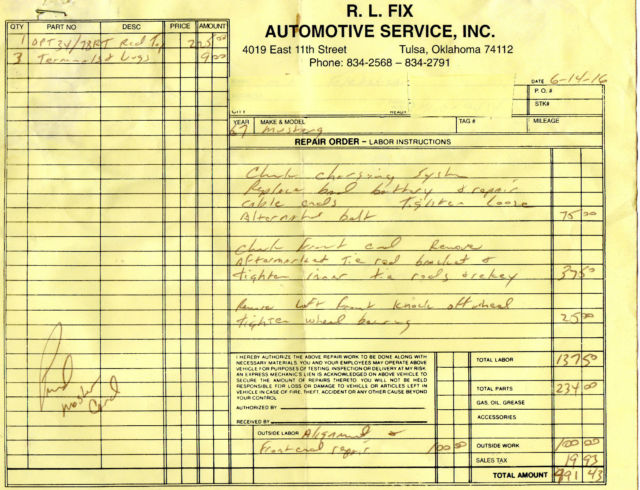 R. L. FIX
AUTOMOTIVE SERVICE, INC.
4019 East 11th Street Tulsa, Oklahoma 74112
Phone: 834-2568 – 834-2791
QTY PART NO DESC PRICE AMOUNT
1 OPT34/78RT Red Top 225 00
3 Terminals & Lugs 9 00
DATE 6-14-16
P. O. #
STK#
CITY READY
YEAR MAKE & MODEL TAG # MILEAGE
67 Mustang
REPAIR ORDER – LABOR INSTRUCTIONS
Check charging System
Replace bad battery & repair
cable ends Tighten loose
Alternator belt 75 00
Check front end Remove
Aftermarket Tie rod bracket &
tighten inner tie rods & rekey 37 50
Remove Left front knock off wheel
tighten wheel bearing 25 00
I HEREBY AUTHORIZE THE ABOVE REPAIR WORK TO BE DONE ALONG WITH
NECESSARY MATERIALS. YOU AND YOUR EMPLOYEES MAY OPERATE ABOVE
VEHICLE FOR PURPOSES OF TESTING, INSPECTION OR DELIVERY AT MY RISK.
AN EXPRESS MECHANIC'S LIEN IS ACKNOWLEDGED ON ABOVE VEHICLE TO
SECURE THE AMOUNT OF REPAIRS THERETO. YOU WILL NOT BE HELD
RESPONSIBLE FOR LOSS OR DAMAGE TO VEHICLE OR ARTICLES LEFT IN
VEHICLE IN CASE OF FIRE, THEFT, ACCIDENT OR ANY OTHER CAUSE BEYOND
YOUR CONTROL
AUTHORIZED BY
RECEIVED BY
TOTAL LABOR 137 50
TOTAL PARTS 234 00
GAS, OIL, GREASE
ACCESSORIES
Paid
Master
Card
OUTSIDE LABOR Alignment &
Front end repair 100 00
OUTSIDE WORK 100 00
SALES TAX 19 93
TOTAL AMOUNT 491 43